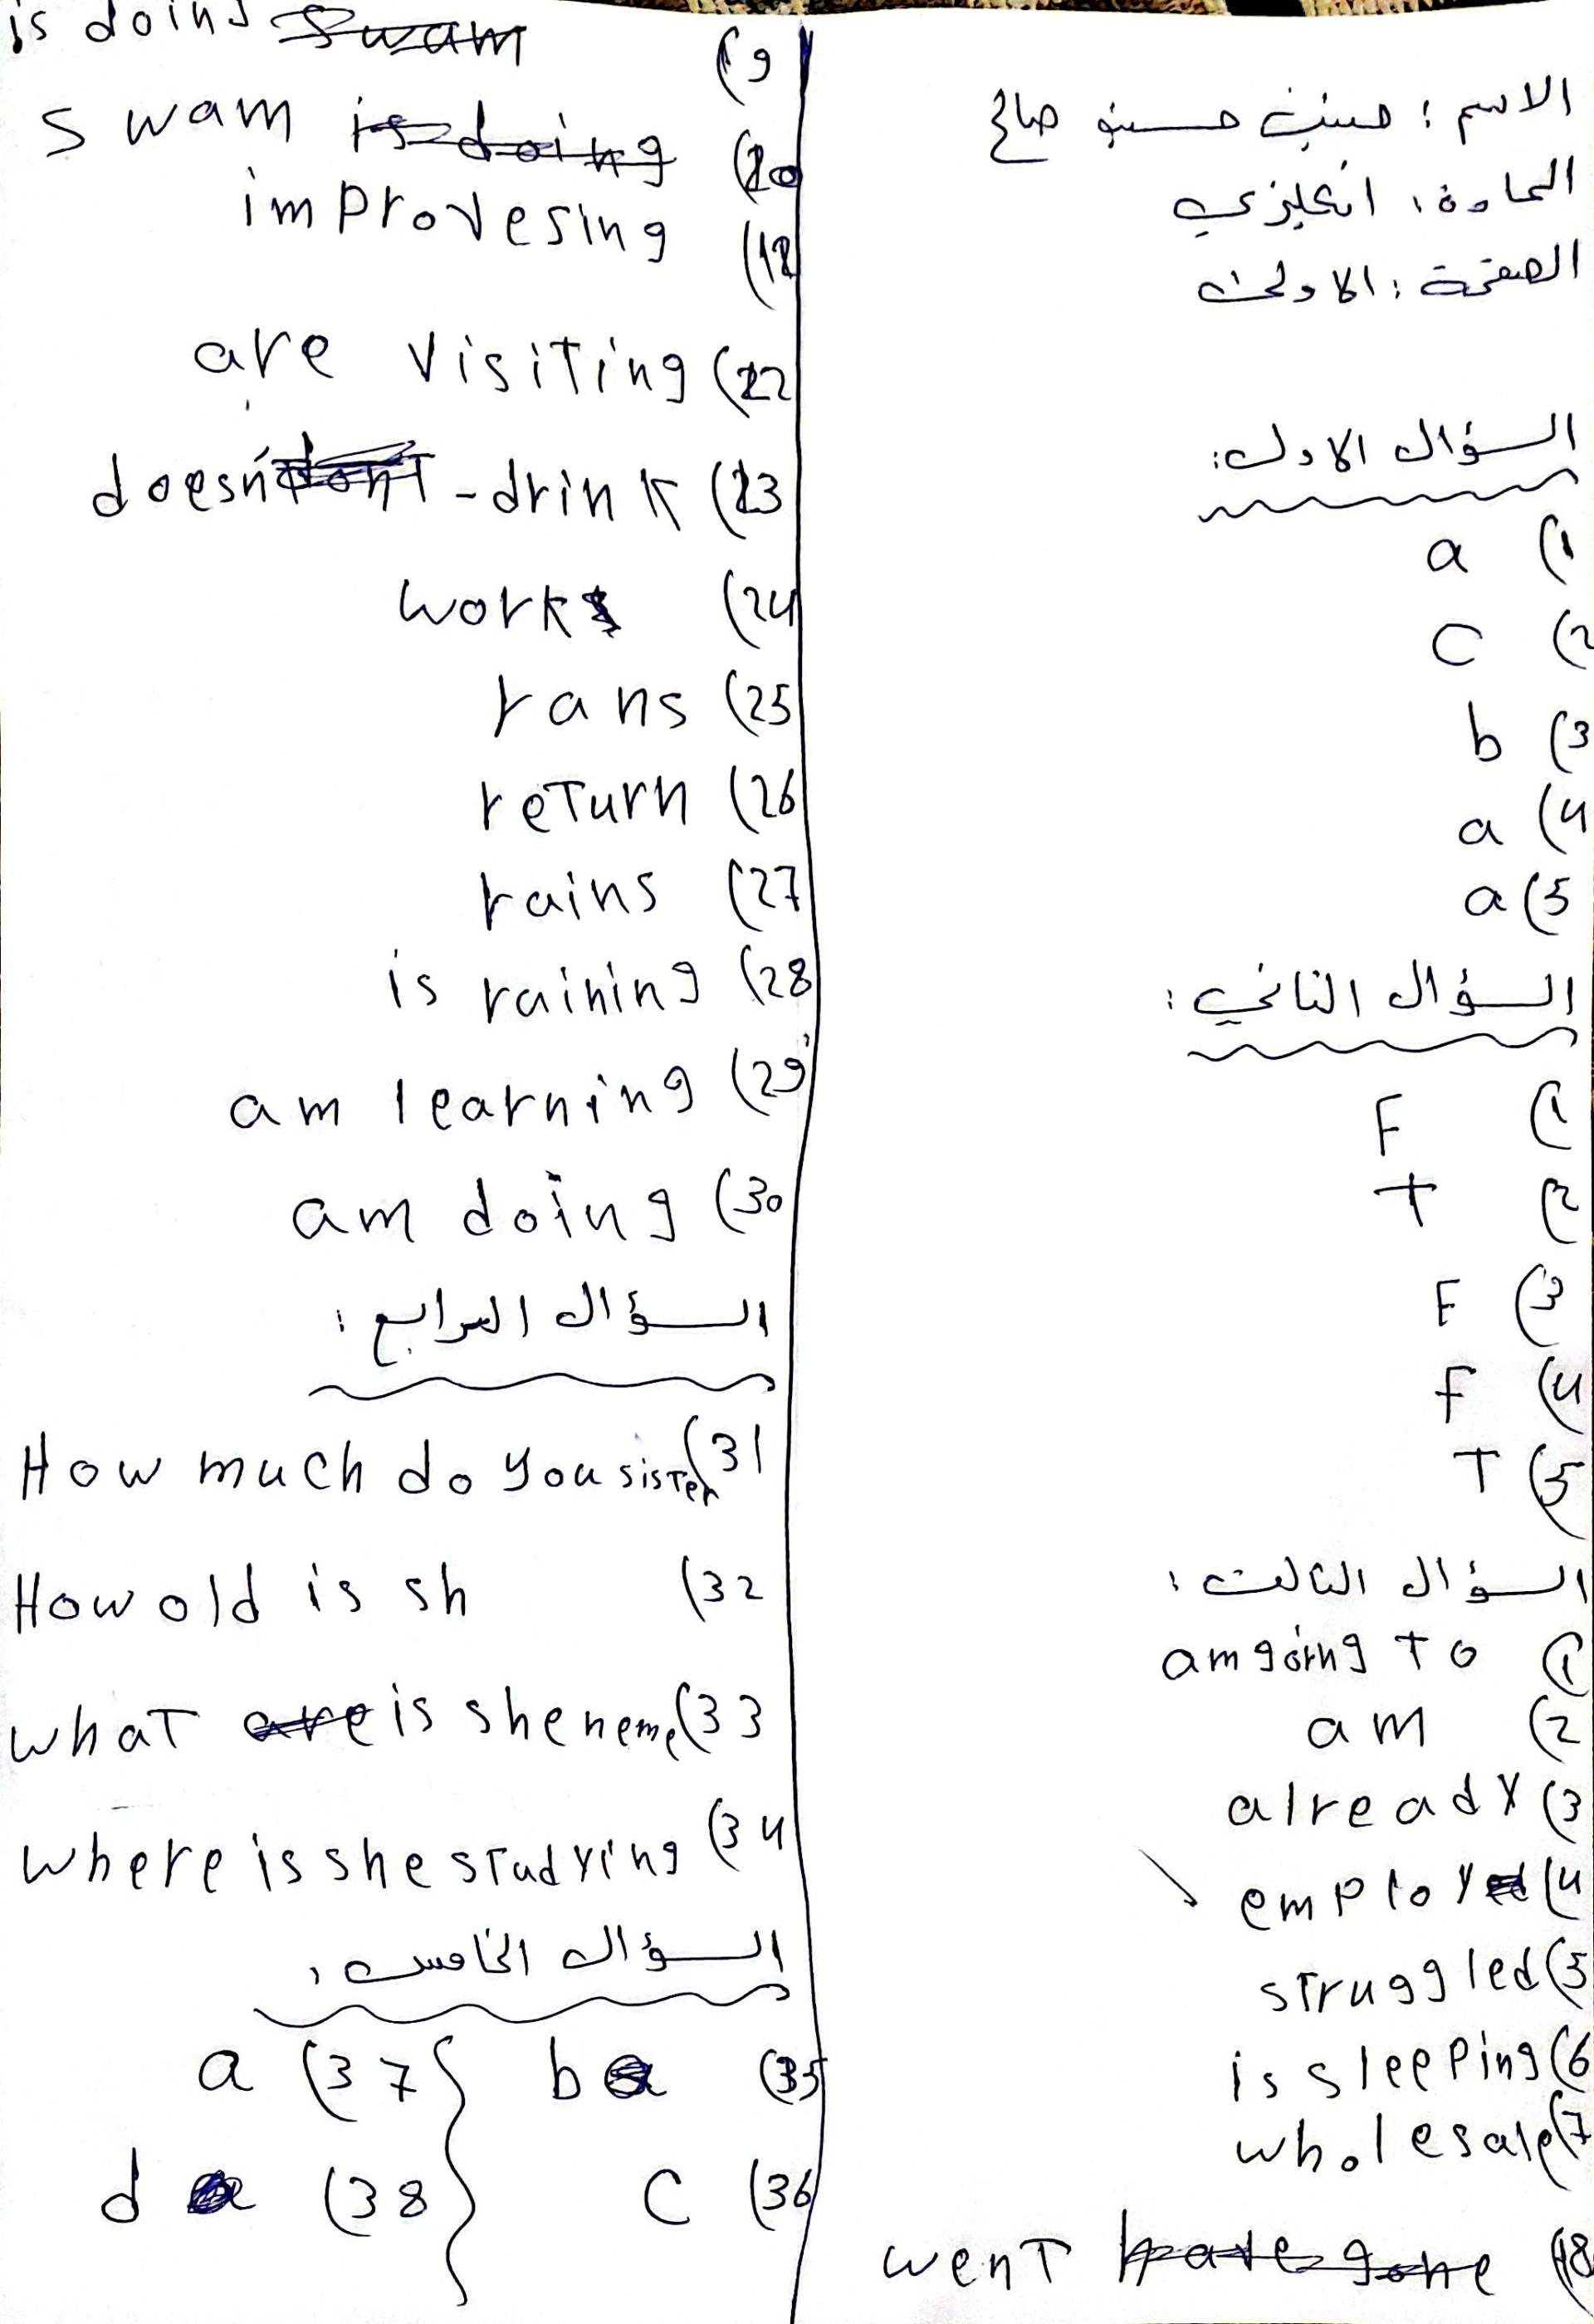 الاسم : حسين صالح
المادة : انجليزي
الصفحة : الاولى
السؤال الاول:
1) a
2) c
3) b
4) a
5) a
السؤال الثاني :
1) F
2) T
3) F
4) F
5) T
السؤال الثالث :
1) am going to
2) am
3) already
4) employ
5) struggled
6) is sleeping
7) wholesale
18) went have gone
19) is doing swam
20) swam is doing
improvesing
22) are visiting
23) doesn't dont - drink
24) works
25) rans
26) return
27) rains
28) is raining
29) am learning
30) am doing
السؤال الرابع :
31) How much do you sister
32) How old is sh
33) what are is she neme
34) where is she studying
السؤال الخامس :
35) b a
36) c
37) a
38) d